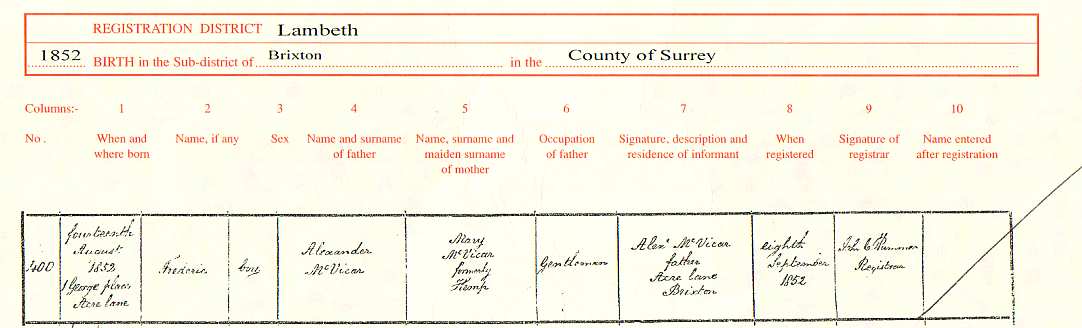 REGISTRATION DISTRICT Lambeth
1852 BIRTH in the Sub-district of Brixton in the County of Surrey
Columns:- 1 2 3 4 5 6 7 8 9 10
No. When and where born Name, if any Sex Name and surname of father Name, surname and maiden surname of mother Occupation of father Signature, description and residence of informant When registered Signature of registrar Name entered after registration
400
fourteenth
August
1852
1 George place
Acre lane
Frederic
boy
Alexander
McVicar
Mary
McVicar
formerly
Kemp
Gentleman
Alexr McVicar
father
Acre lane
Brixton
eighth
September
1852
Registrar